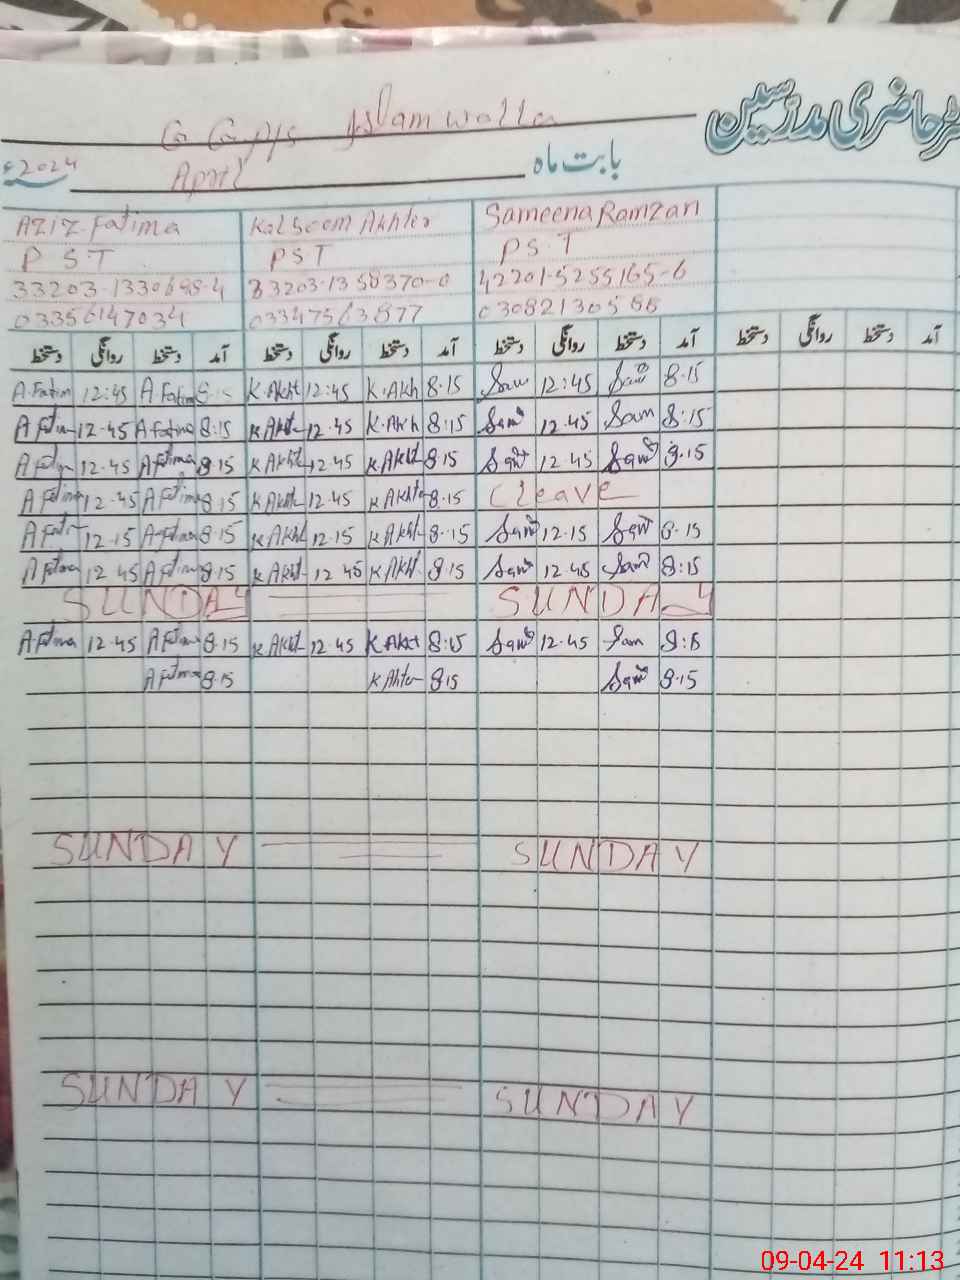 رجسٹر حاضری مدرسین
Islam walla
2024 April بابت ماہ
Aziz Fatima Kalsoom Akhter Sameena Ramzan
P S T P S T P S T
33203-1330698-4 33203-1358370-0 42201-5255165-6
03356147034 03347563877
دستخط روانگی دستخط آمد دستخط روانگی دستخط آمد دستخط روانگی دستخط آمد دستخط روانگی دستخط آمد
A.Fatim 12:45 A.Fatim 8:15 K.Akht 12:45 K.Akh 8.15 Sam 12:45 Sam 8.15
A Fatim 12.45 A Fatima 8:15 K Akht 12.45 K.Akh 8:15 Sam 12.45 Sam 8:15
A Fatim 12.45 A Fatima 8.15 K Akht 12.45 K Akht 8.15 Sam 12.45 Sam 8.15
A Fatima 12.45 A Fatima 8.15 K Akht 12.45 K Akhte 8.15 Cleave
A Fati 12.15 A Fatima 8.15 K Akht 12.15 K Akht 8.15 Sam 12.15 Sam 8.15
A Fatima 12 45 A Fatima 8.15 K Akht 12 45 K Akht 8.15 Sam 12.45 Sam 8:15
SUNDAY SUNDAY
A Fatima 12.45 A Fatima 8.15 K Akht 12.45 K Akht 8:15 Sam 12.45 Sam 8:15
A Fatima 8.15 K Ahter 8.15 Sam 8.15
SUNDAY SUNDAY
SUNDAY SUNDAY
09-04-24 11:13